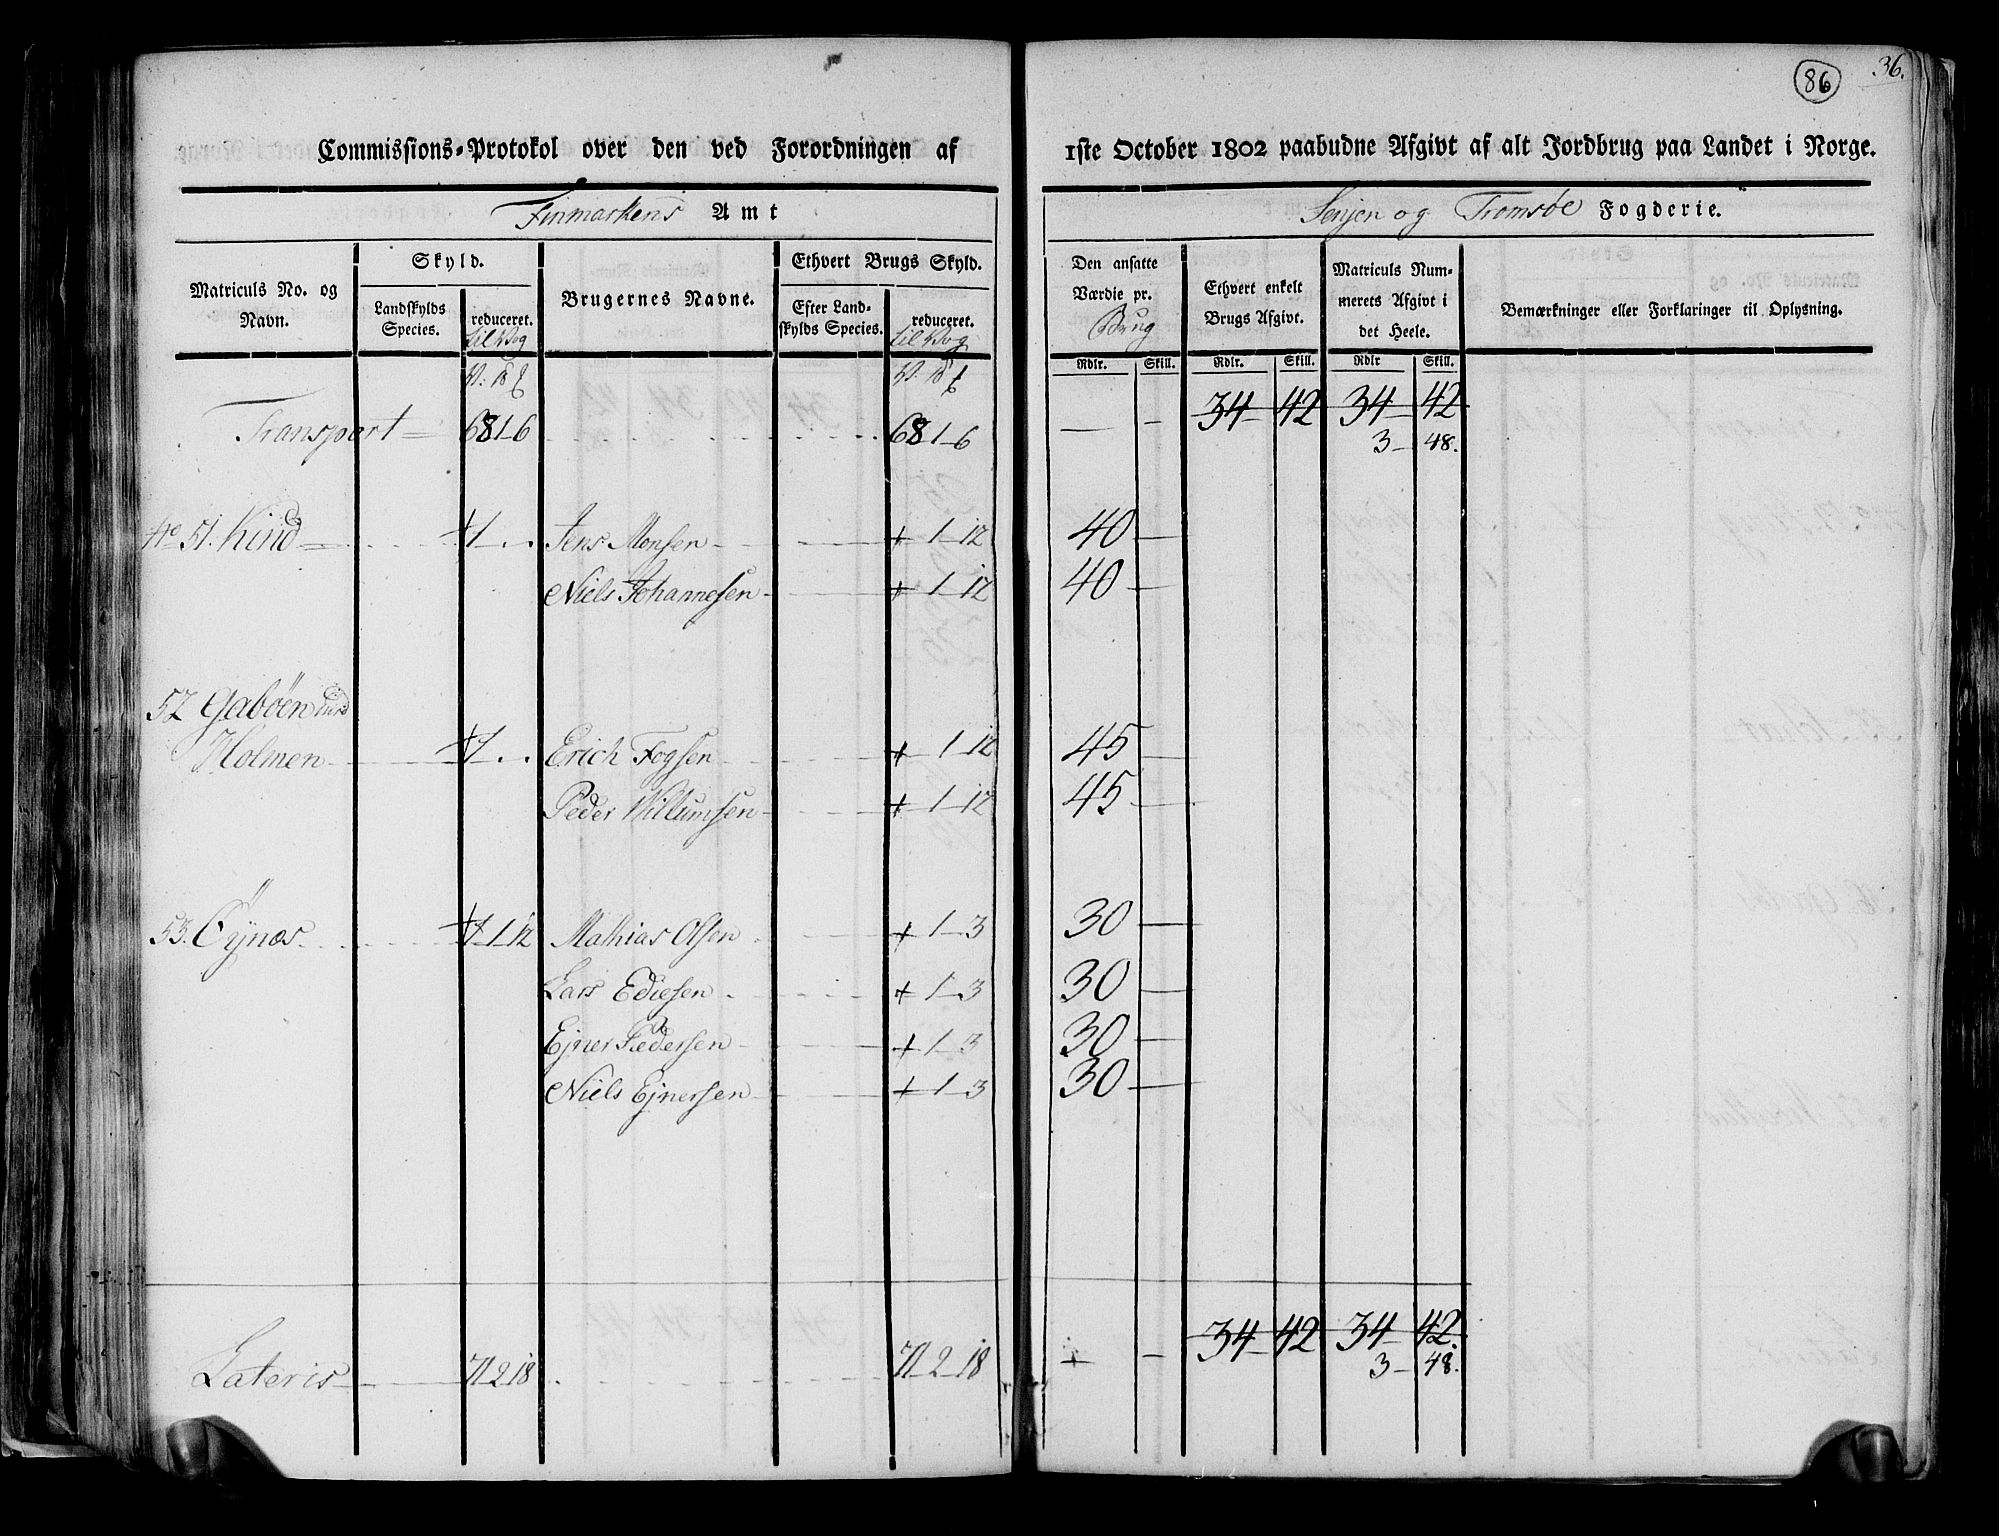 86 36.
Commissions-Protokol over den ved Forordningen af 1ste October 1802 paabudne Afgivt af alt Jordbrug paa Landet i Norge.
Finmarkens Amt Senjen og Tromsøe Fogderie.
Matriculs No. og Navn. Skyld. Landskylds Species. reduceret. til Vog
Brugernes Navne. Ethvert Brugs Skyld. Efter Landskylds Species. reduceret. til Vog
Den ansatte Værdie pr. Brug Rdlr. Skill.
Ethvert enkelt Brugs Afgivt. Rdlr. Skill.
Matriculs Nummerets Afgivt i det Heele. Rdlr Skill.
Bemærkninger eller Forklaringer til Oplysning.
Transport 68 1 6 68 1 6 — - 34 42 34 42
3 48.
No 51. Kind 1 . . Jens Monsen + 1 12 40 —
Niels Johannesen + 1 12 40 —
52 Gabøen
Holmen 1 . . Erich Fogsen + 1 12 45 —
Peder Willumsen + 1 12 45 —
53. Öynæs 1 1 12 Mathias Olsen + 1 3 30 —
Lars Ediesen + 1 3 30 —
Ejner Pedersen + 1 3 30 —
Niels Ejnersen + 1 3 30 —
Lateris 71 2 18 71 2 18 34 42 34 42.
3 48.